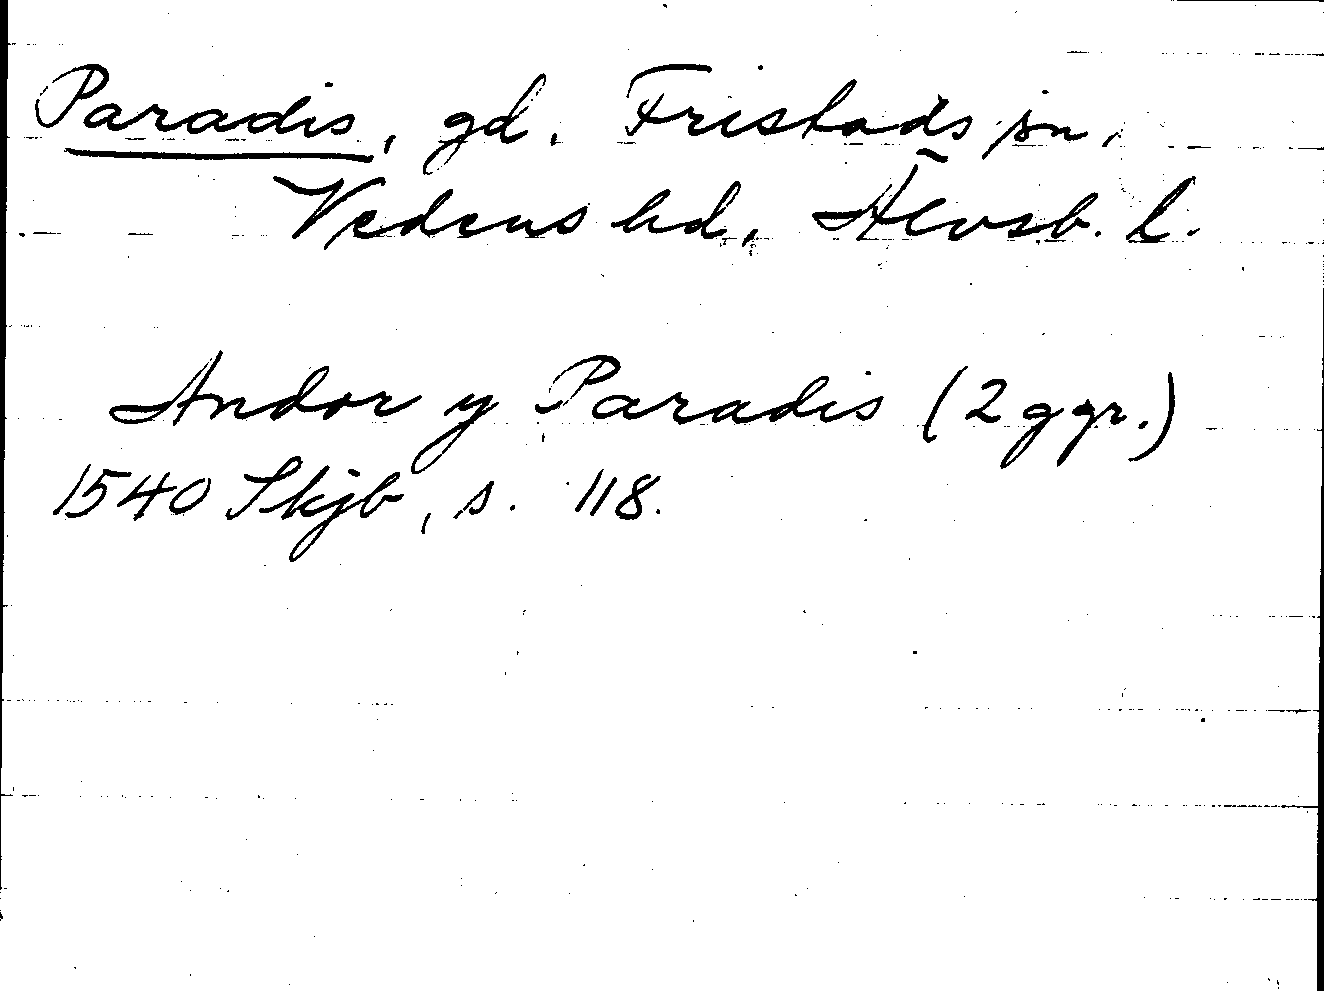 Paradis, gd. Fristads sn,
Vedens hd, Älvsb. l.
Andor y Paradis (2 ggr.)
1540 Skjb, s. 118.